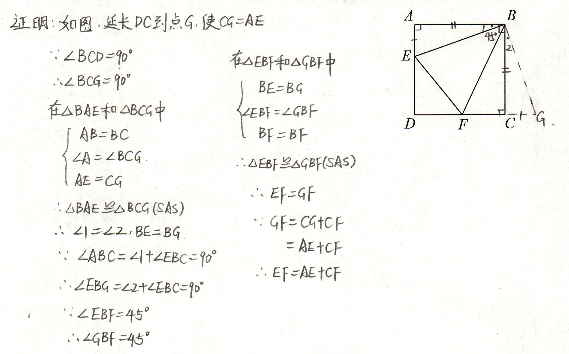 证明:如图,延长DC到点G,使CG=AE
∵∠BCD=90°
∴∠BCG=90°
在△BAE和△BCG中
AB=BC
∠A=∠BCG
AE=CG
∴△BAE≌△BCG(SAS)
∴∠1=∠2,BE=BG
∵∠ABC=∠1+∠EBC=90°
∴∠EBG=∠2+∠EBC=90°
∵∠EBF=45°
∴∠GBF=45°
在△EBF和△GBF中
BE=BG
∠EBF=∠GBF
BF=BF
∴△EBF≌△GBF(SAS)
∴EF=GF
∵GF=CG+CF
=AE+CF
∴EF=AE+CF
A
B
45°
2
E
D
F
C
G